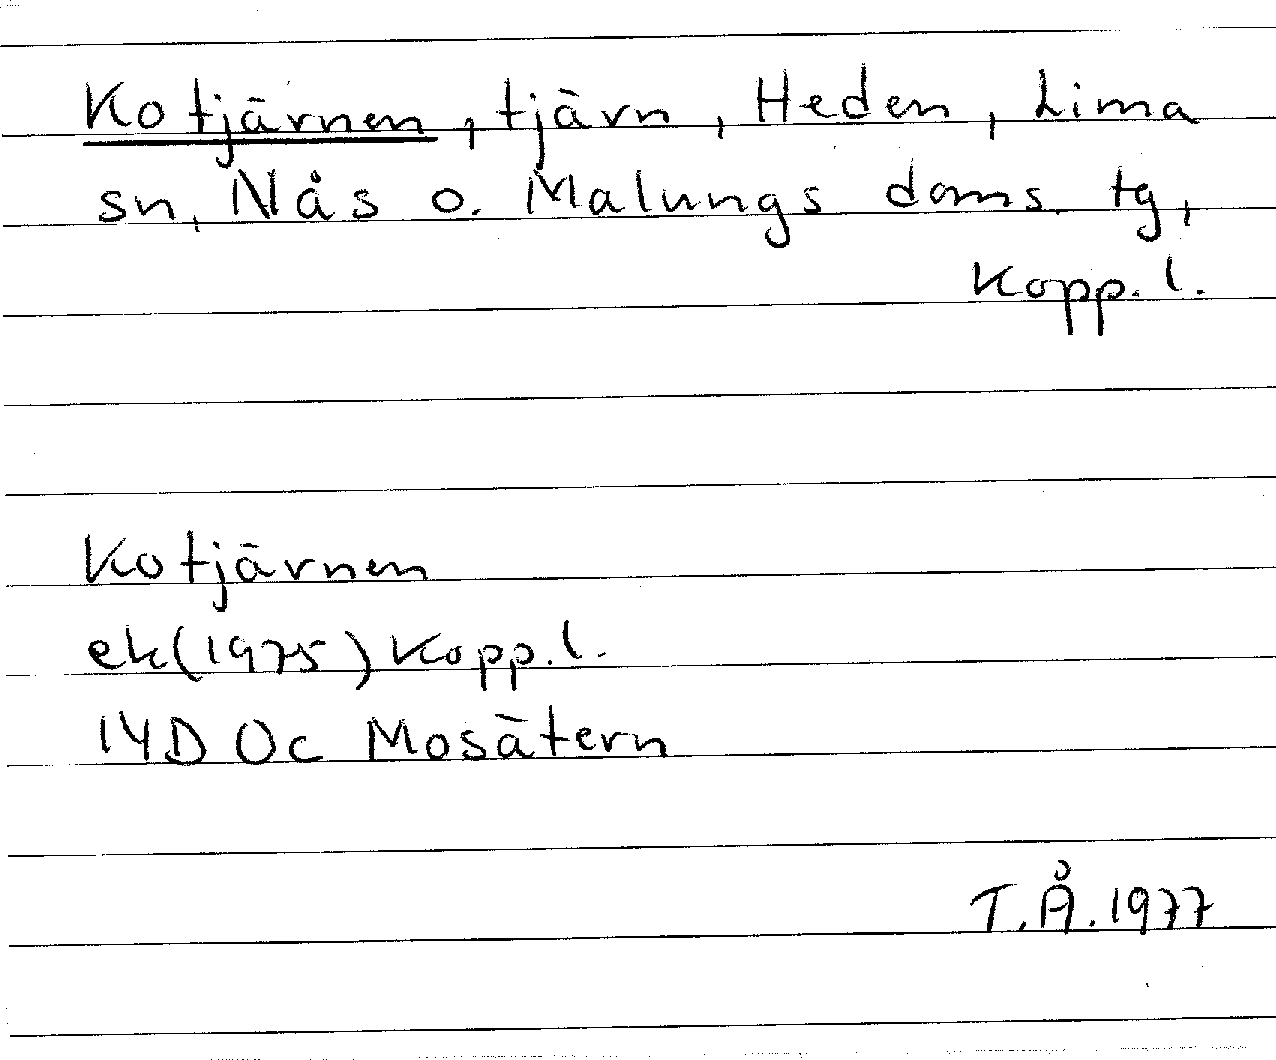 Kotjärnen, tjärn, Heden, Lima
sn, Nås o. Malungs doms. tg,
Kopp. l.
Kotjärnen
ek(1975) Kopp. l.
14D 0c Mosätern
T.Å. 1977